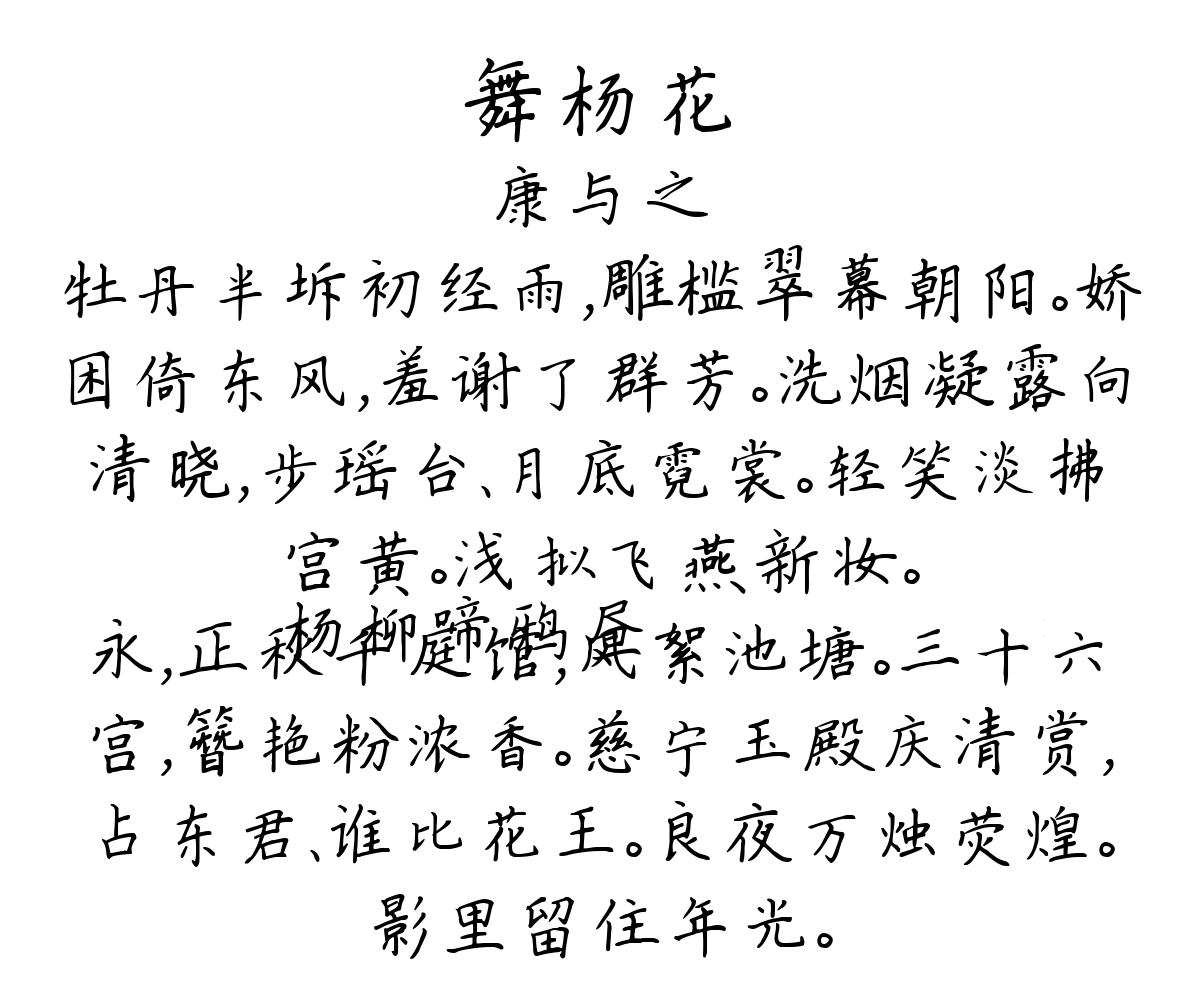 舞杨花
康与之
牡丹半坼初经雨,雕槛翠幕朝阳。娇
困倚东风,羞谢了群芳。洗烟凝露向
清晓,步瑶台、月底霓裳。轻笑淡拂
宫黄。浅拟飞燕新妆。
杨柳啼鸦昼
永,正秋千庭馆,风絮池塘。三十六
宫,簪艳粉浓香。慈宁玉殿庆清赏,
占东君、谁比花王。良夜万烛荧煌。
影里留住年光。